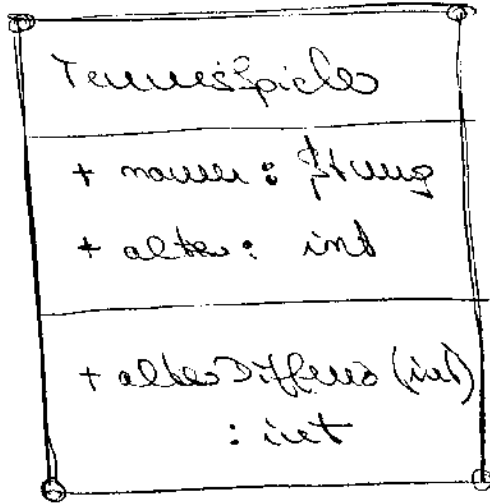 Tennisspieler
+ name: String
+ alter: int
+ alterDifferenz (int)
: int